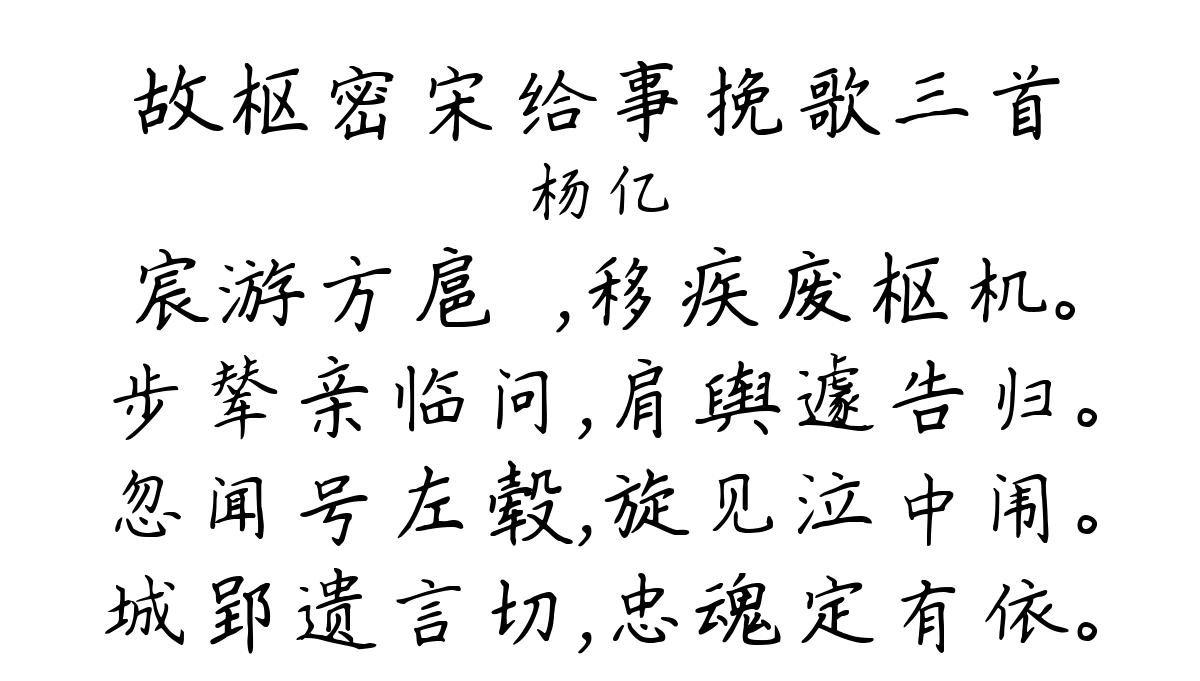 故枢密宋给事挽歌三首
杨亿
宸游方扈 ,移疾废枢机。
步辇亲临问,肩舆遽告归。
忽闻号左毂,旋见泣中闱。
城郢遗言切,忠魂定有依。